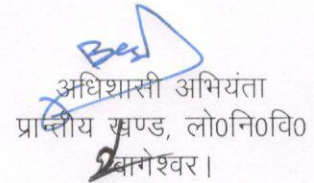 अधिशासी अभियंता
प्रान्तीय खण्ड, लो0नि0वि0
बागेश्वर।